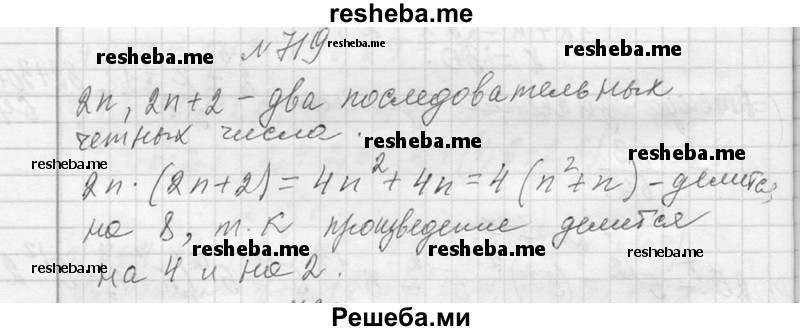 resheba.me
resheba.me № 719 resheba.me resheba.me
2n, 2n+2 - два последовательных
четных числа.
resheba.me resheba.me resheba.me
2n · (2n+2) = 4n² + 4n = 4 (n²+n) - делится
на 8, т.к произведение делится
resheba.me resheba.me resheba.me
на 4 и на 2.
Решеба.ми